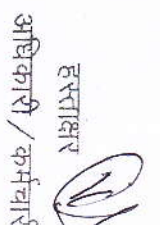 हस्ताक्षर
अधिकारी / कर्मचारी